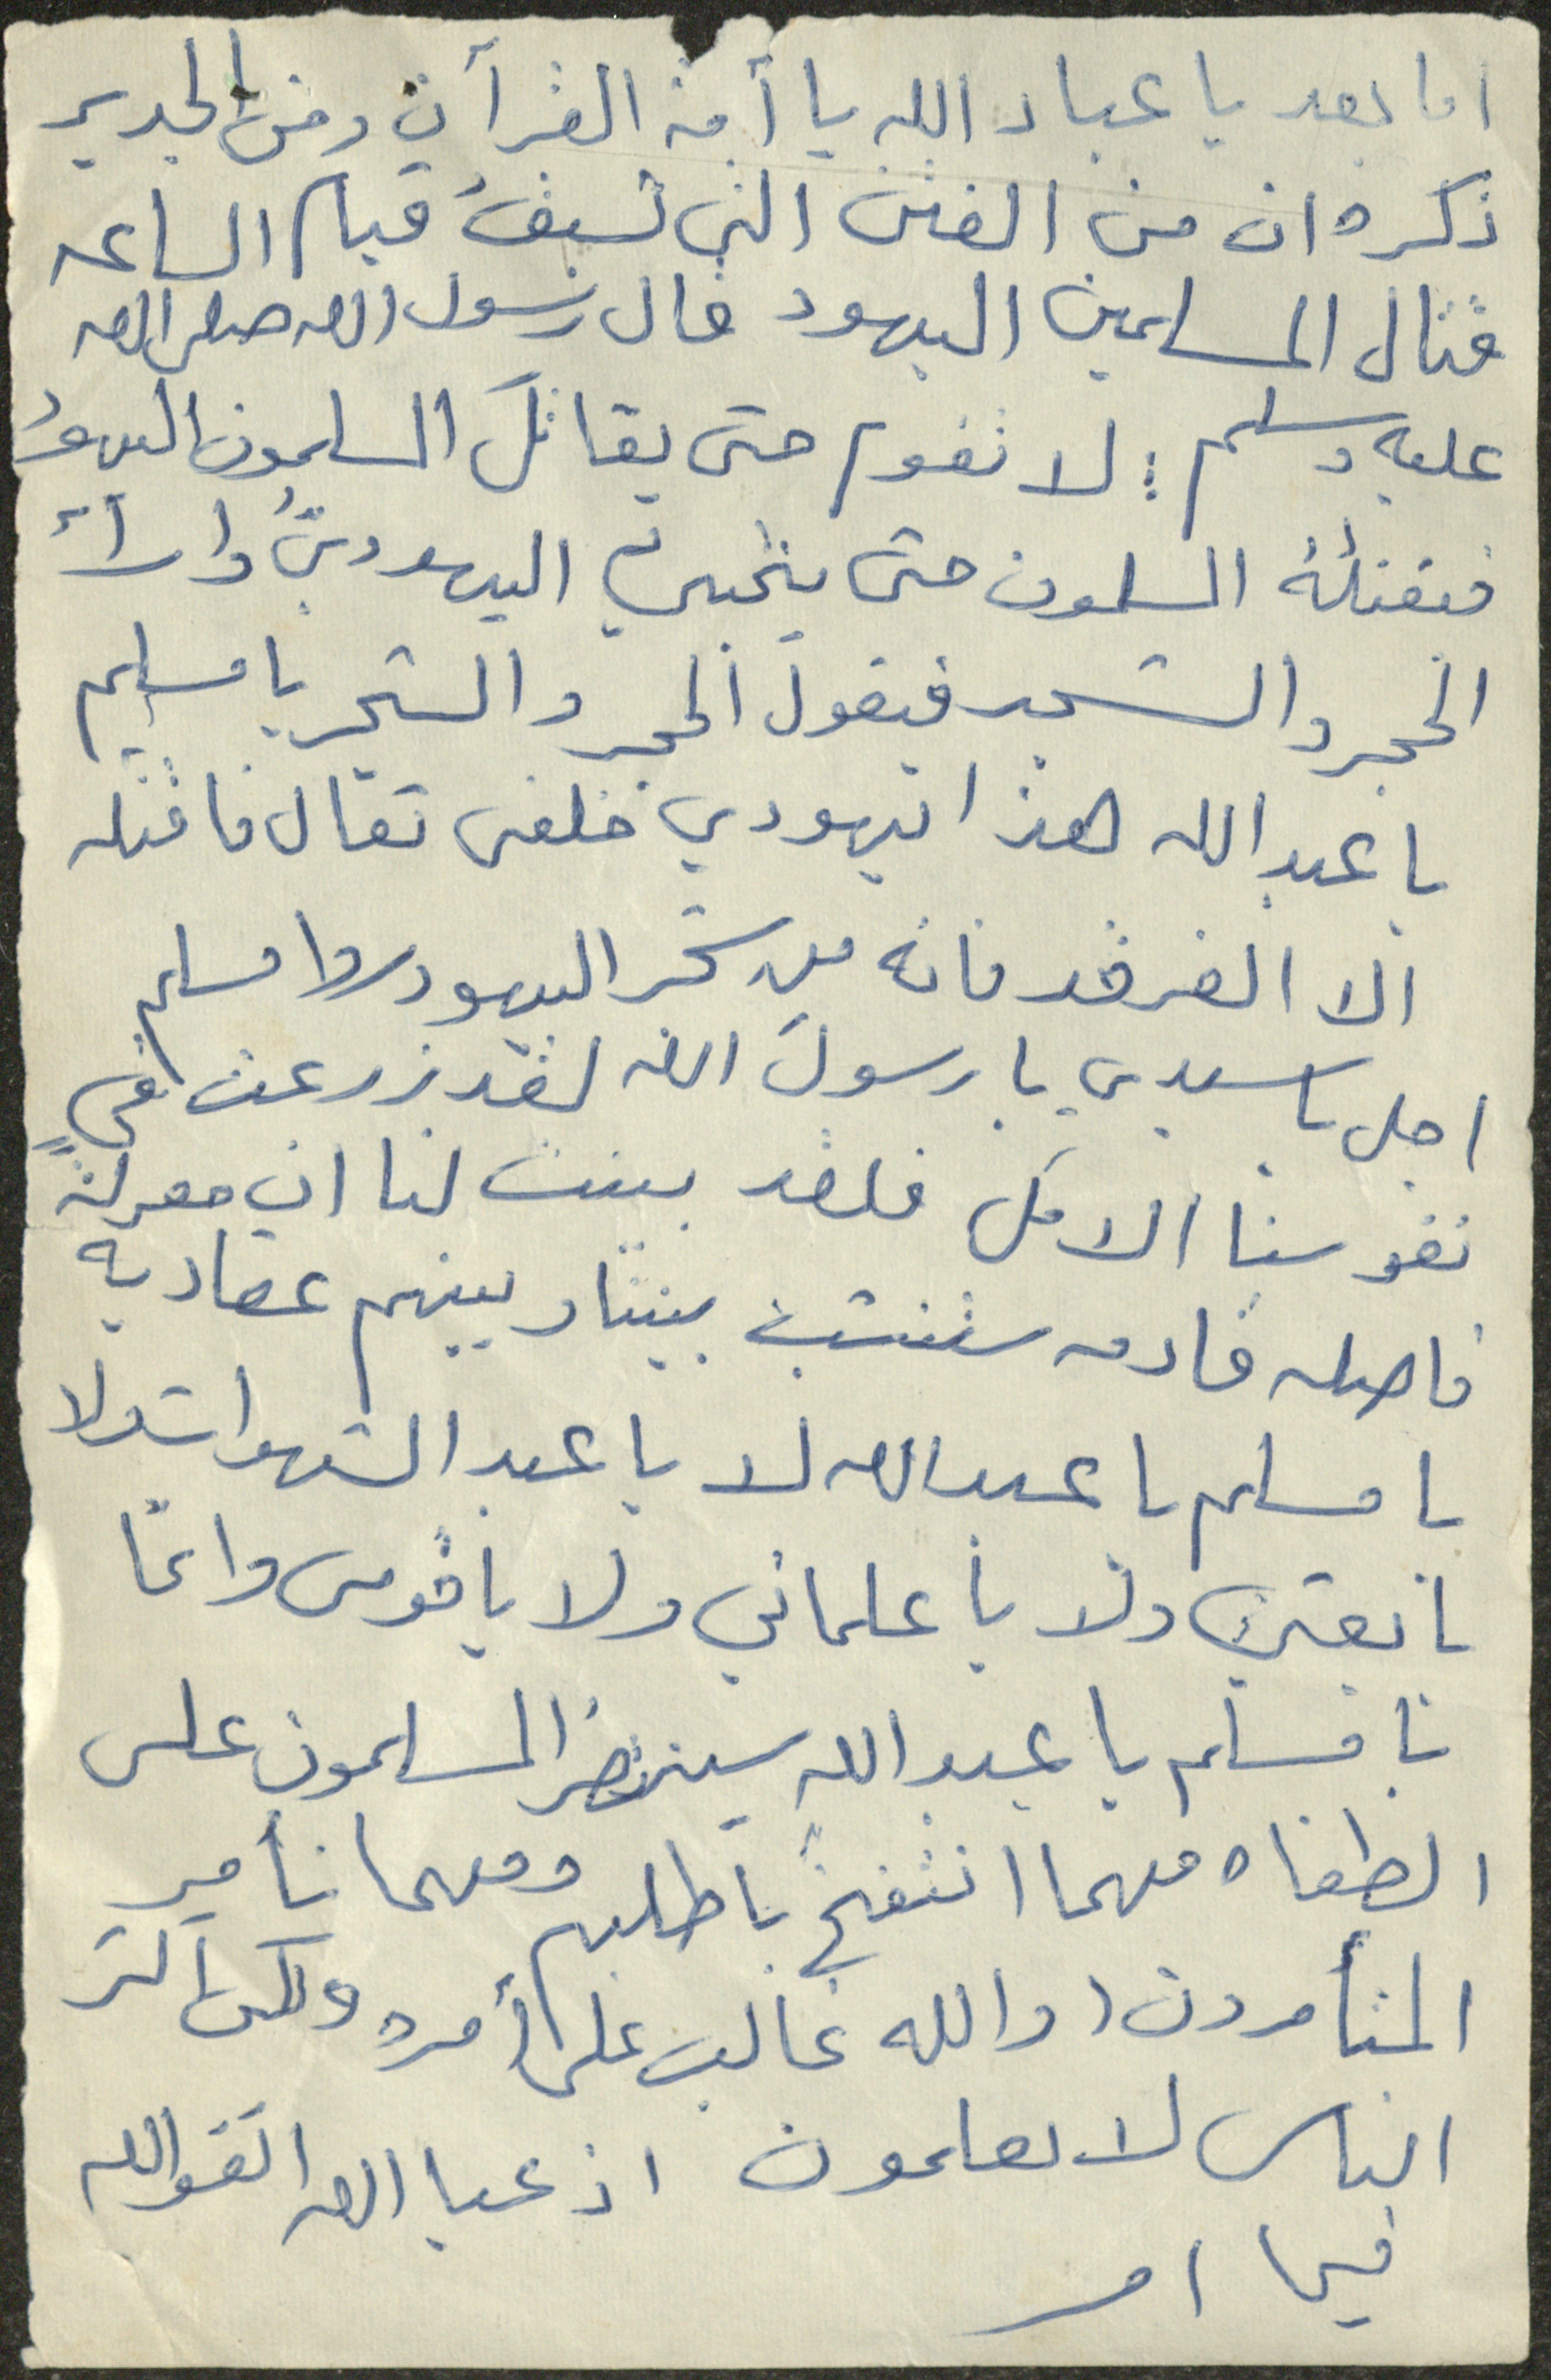 اما بعد يا عباد الله يا أمة القرآن ومن الجدير
ذكره ان من الفتن التي تسبقُ قيام الساعه
قتال المسلمين اليهود قال رسول الله صلى الله
عليه وسلم : لا تقوم حتى يقاتلَ المسلمون اليهودُ
فيقتلهُ المسلمون حتى يختبئ اليهوديُ وراءَ
الحجر والشجر فيقول الحجر والشجر يا مسلم
يا عبد الله هذا يهودي خلفي تعال فاقتله
الا الغرقد فانه من شجر اليهود رواه مسلم
اجل يا سيدي يا رسولَ الله لقد زرعت في
نفوسنا الامل فلقد بينت لنا ان معركةً
فاصله قادمه ستنشب بيننا وبينهم عقاديه
يا مسلم يا عبدالله لا يا عبد الشهوات ولا
يا بعثي ولا يا علماني ولا يا قومي وانما
يا مسلم يا عبد الله سينتصر المسلمون على
الطغاه مهما انتفخَ باطلهم ومهما تأمر
المتأمرون ( والله غالب على أمره ولكن أكثر
الناس لا يعلمون اذ عبا الله اتقو الله
فيما امر